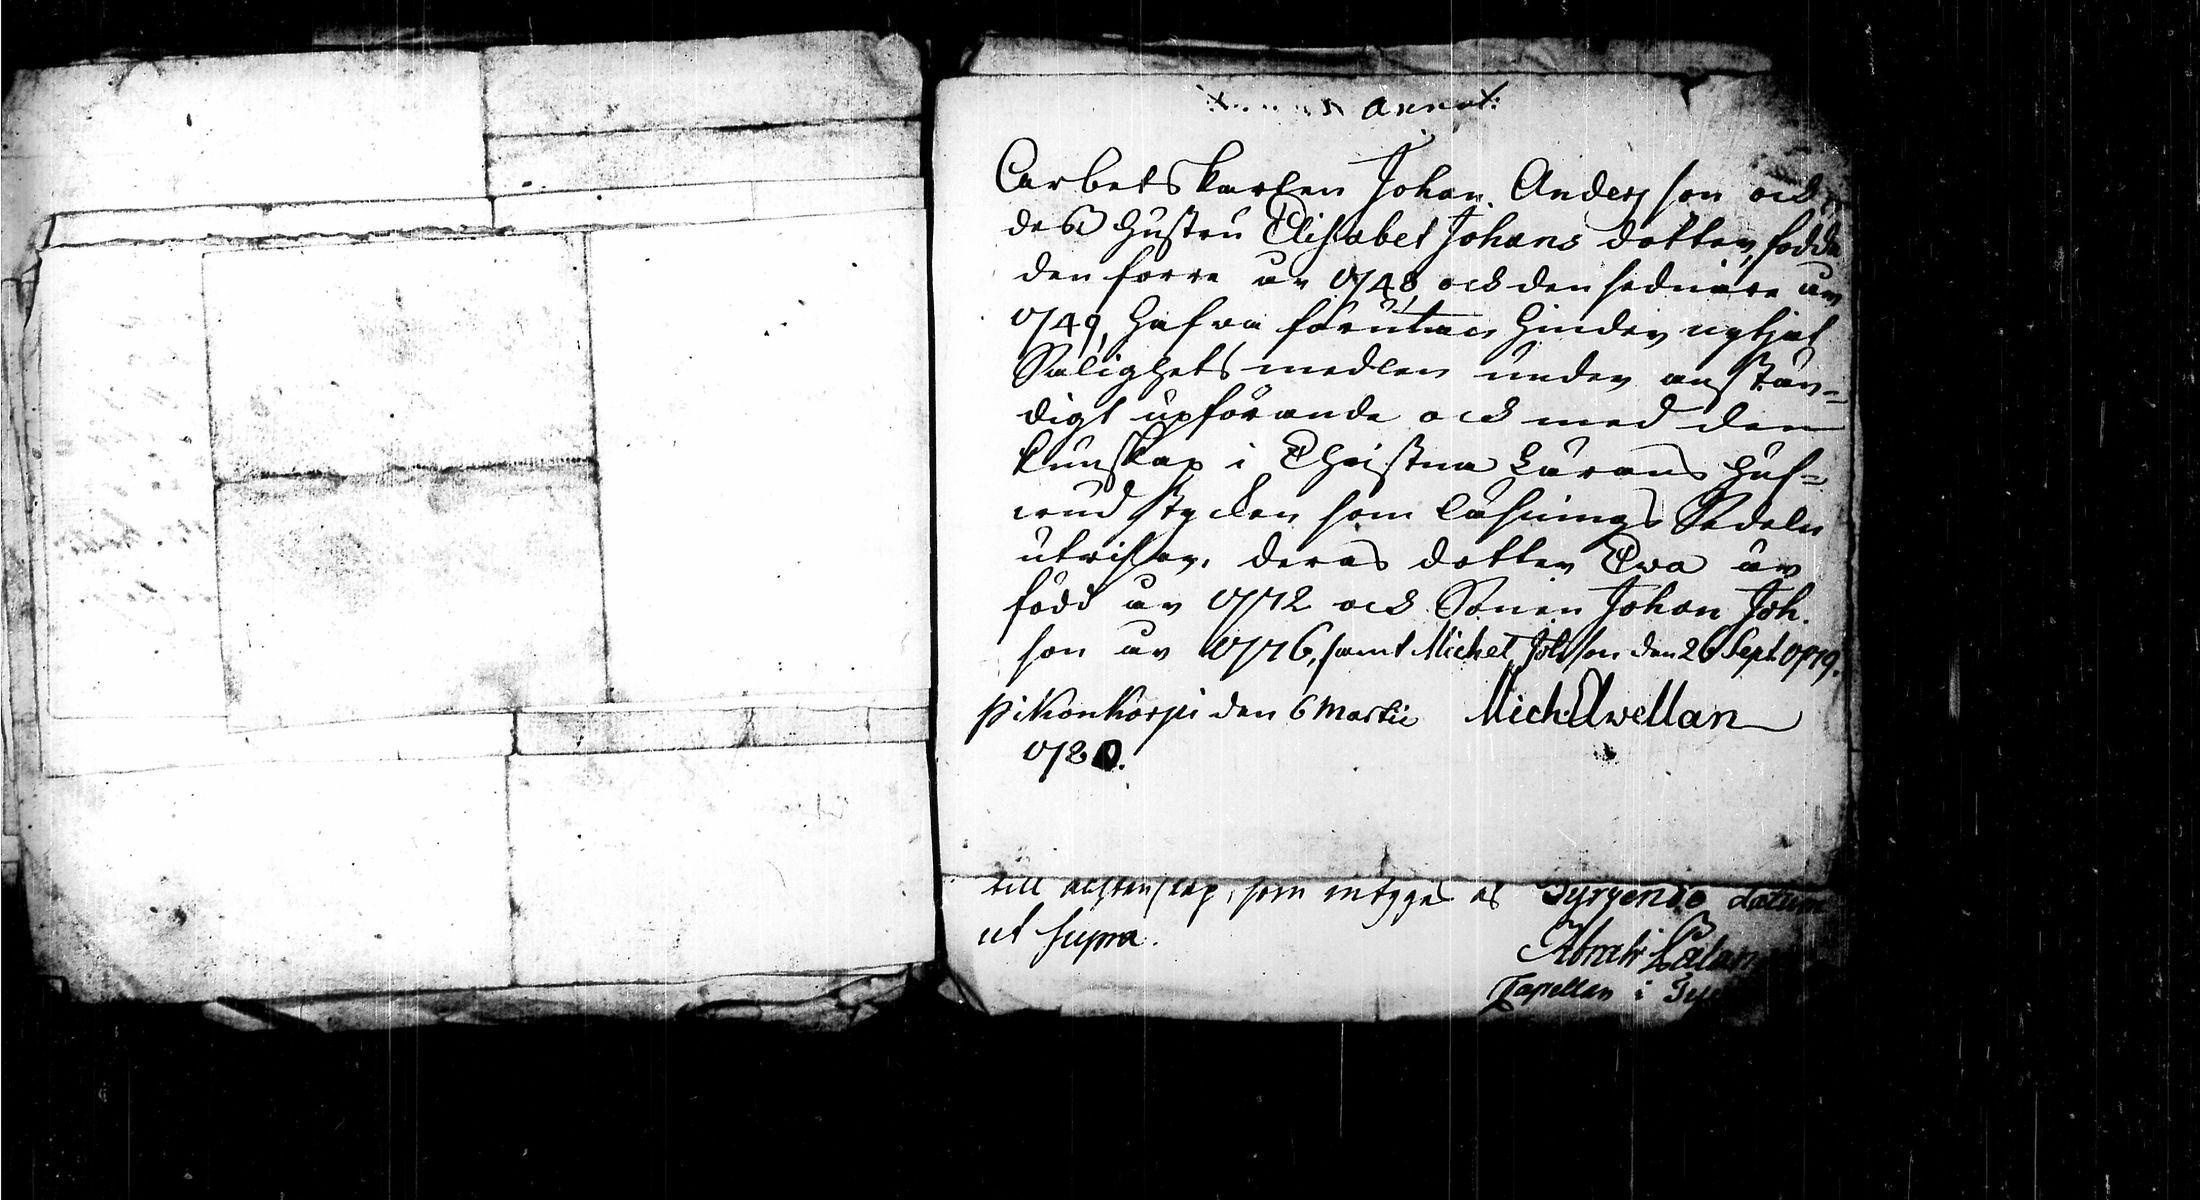 annat:
Arbetskarlen Johan Andersson och
dess Hustru Elisabet Johans dotter, födde
den förre år 1748 och den sednare år
1749, hafva förutan hinder nytjat
Salighets medlen under anstän-
digt upförande och med den
kunskap i Christna Lärans huf-
vud stycken som läsnings Sedeln
utvisar. deras dotter Eva är
född år 1772 och Sonen Johan Joh.
son år 1776, samt Michel Johsson den 26 Sept. 1779.
Pikonkorpi den 6 Martii Mich. Avellan
1780.
till achtenscap, som intygas af Tyrvendo datum
ut supra.
Abrah:
Capellan i